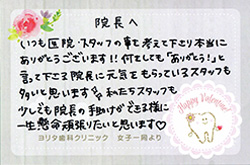 院長へ
いつも医院・スタッフの事を考えて下さり本当に
ありがとうございます!! 何をしても「ありがとう!」と
言って下さる院長に元気をもらっているスタッフも
多いと思います 私たちスタッフも
少しでも院長の手助けができる様に
一生懸命頑張りたいと思います♡
ヨリタ歯科クリニック 女子一同より
Happy Valentine!